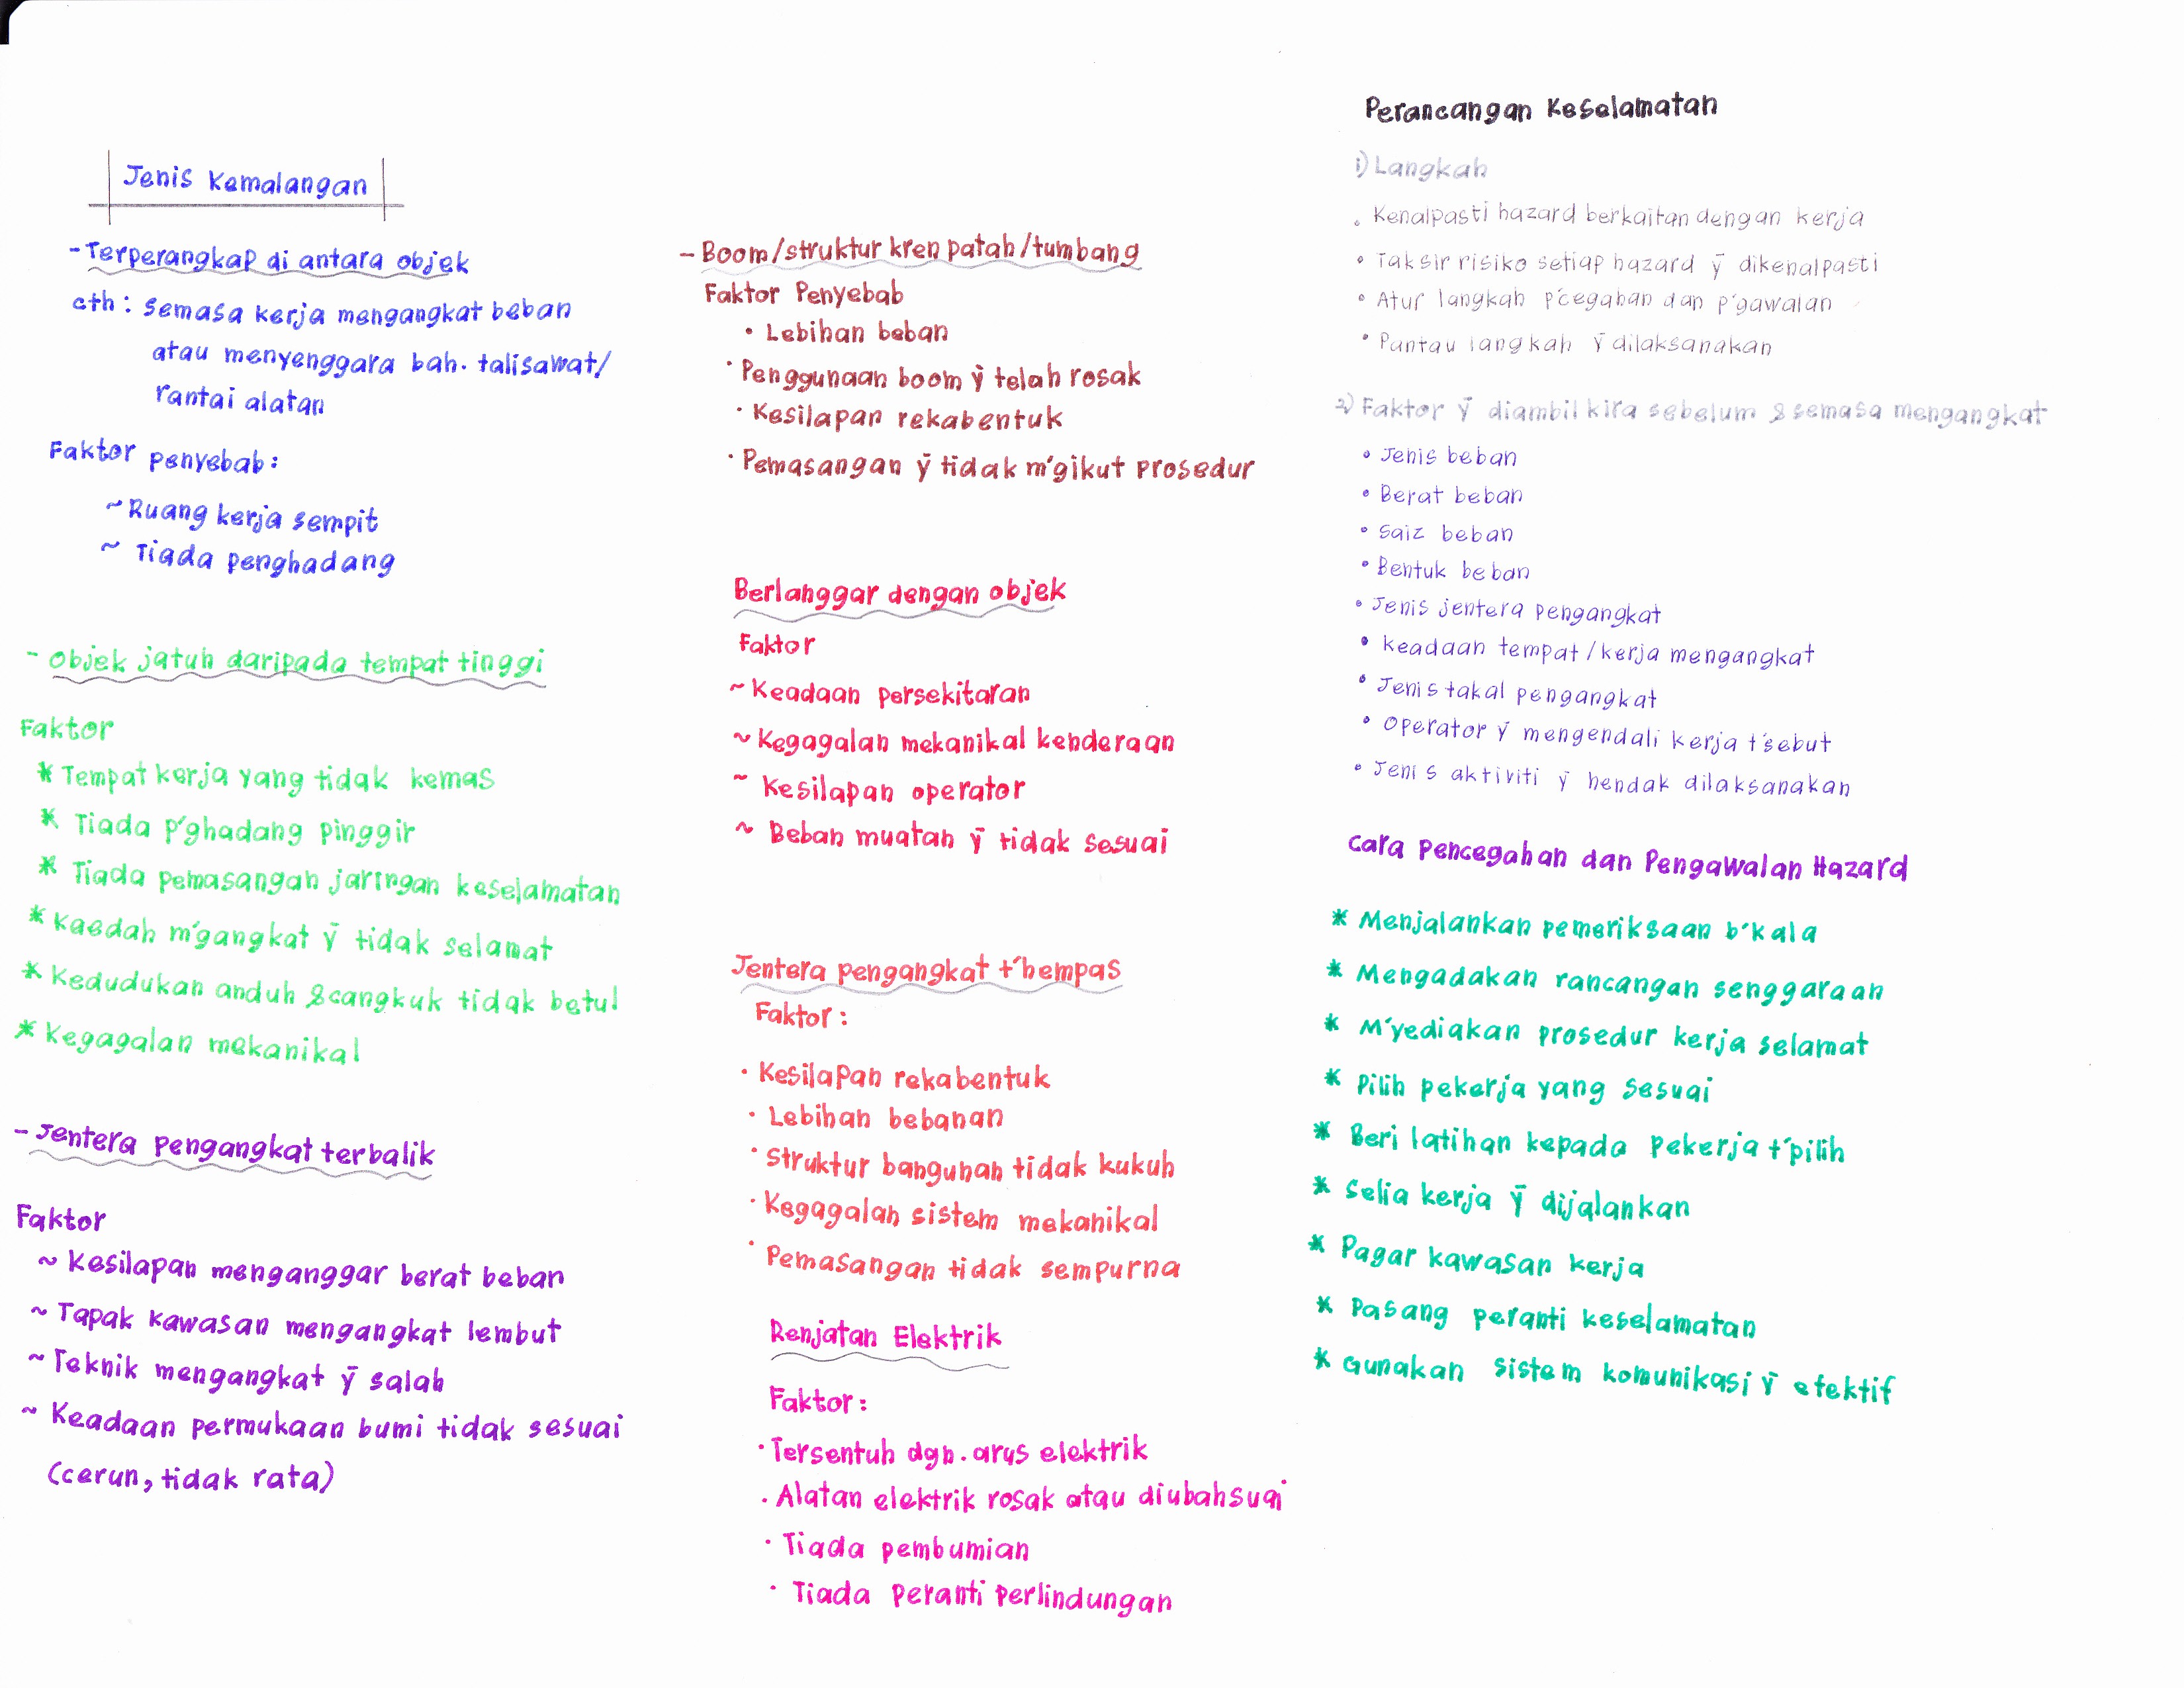 Jenis Kemalangan
- Terperangkap di antara objek
cth : semasa kerja mengangkat beban
atau menyenggara bah. talisawat/
rantai alatan
Faktor penyebab :
~ Ruang kerja sempit
~ Tiada penghadang
- Objek jatuh daripada tempat tinggi
Faktor
* Tempat kerja yang tidak kemas
* Tiada p'ghadang pinggir
* Tiada pemasangan jaringan keselamatan
* Kaedah m'gangkat ȳ tidak selamat
* Kedudukan anduh & cangkuk tidak betul
* Kegagalan mekanikal
- Jentera pengangkat terbalik
Faktor
~ Kesilapan menganggar berat beban
~ Tapak kawasan mengangkat lembut
~ Teknik mengangkat ȳ salah
~ Keadaan permukaan bumi tidak sesuai
(cerun, tidak rata)
- Boom/struktur kren patah/tumbang
Faktor Penyebab
• Lebihan beban
• Penggunaan boom ȳ telah rosak
• Kesilapan rekabentuk
• Pemasangan ȳ tidak m'gikut prosedur
Berlanggar dengan objek
Faktor
~ Keadaan persekitaran
~ Kegagalan mekanikal kenderaan
~ Kesilapan operator
~ Beban muatan ȳ tidak sesuai
Jentera pengangkat t'hempas
Faktor :
• Kesilapan rekabentuk
• Lebihan bebanan
• Struktur bangunan tidak kukuh
• Kegagalan sistem mekanikal
• Pemasangan tidak sempurna
Renjatan Elektrik
Faktor :
• Tersentuh dgn. arus elektrik
• Alatan elektrik rosak atau diubahsuai
• Tiada pembumian
• Tiada peranti perlindungan
Perancangan Keselamatan
1) Langkah
• Kenalpasti hazard berkaitan dengan kerja
• Taksir risiko setiap hazard ȳ dikenalpasti
• Atur langkah p'cegahan dan p'gawalan
• Pantau langkah ȳ dilaksanakan
2) Faktor ȳ diambil kira sebelum & semasa mengangkat
• Jenis beban
• Berat beban
• Saiz beban
• Bentuk beban
• Jenis jentera pengangkat
• Keadaan tempat/kerja mengangkat
• Jenis takal pengangkat
• Operator ȳ mengendali kerja t'sebut
• Jenis aktiviti ȳ hendak dilaksanakan
Cara Pencegahan dan Pengawalan Hazard
* Menjalankan pemeriksaan b'kala
* Mengadakan rancangan senggaraan
* M'yediakan prosedur kerja selamat
* Pilih pekerja yang sesuai
* Beri latihan kepada pekerja t'pilih
* Selia kerja ȳ dijalankan
* Pagar kawasan kerja
* Pasang peranti keselamatan
* Gunakan sistem komunikasi ȳ efektif